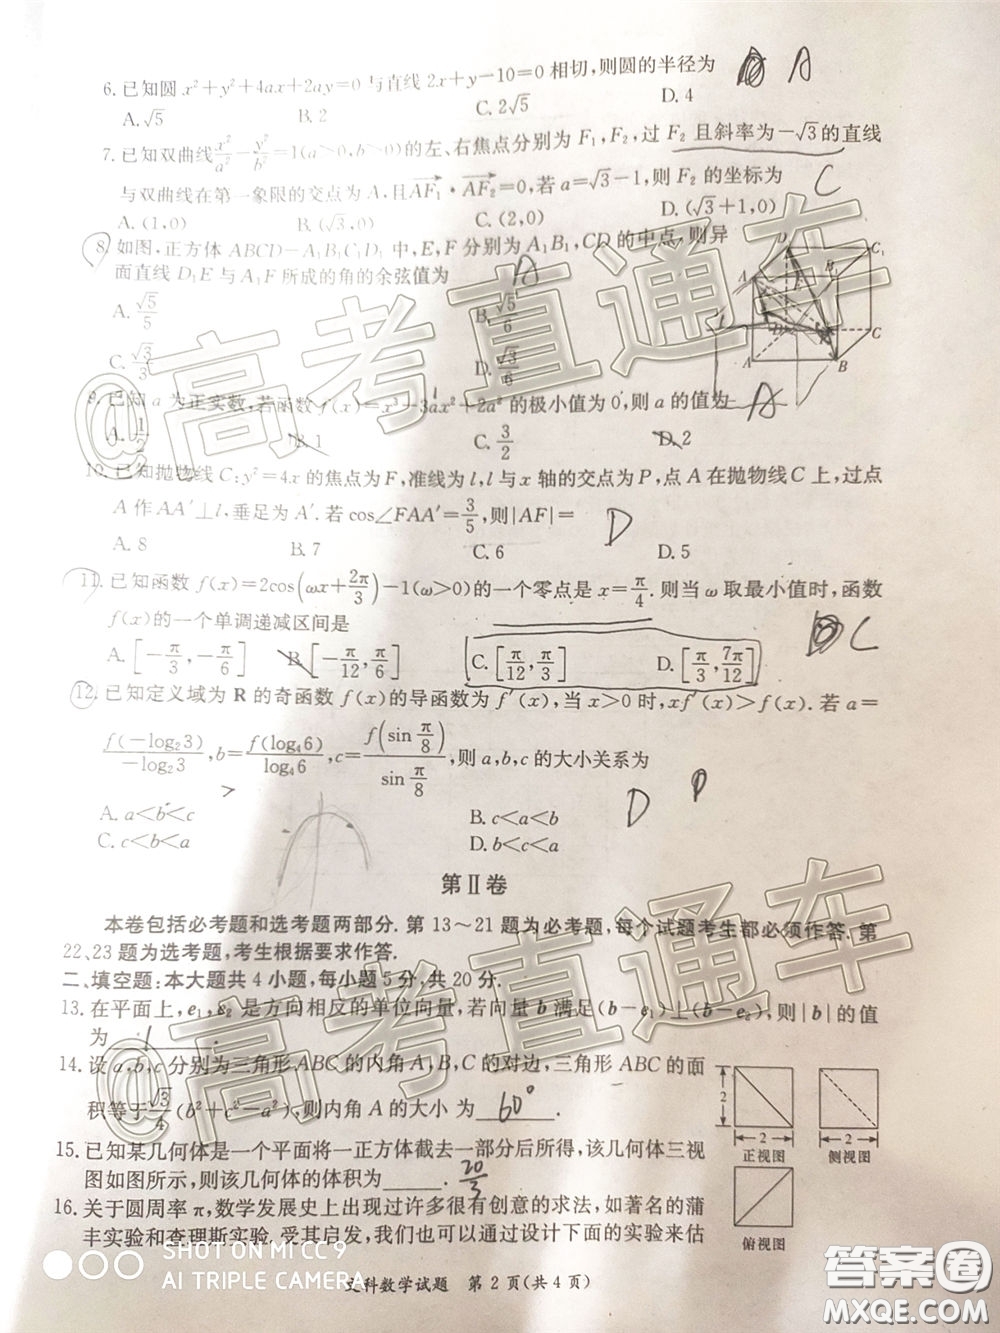 6. 已知圆 x²+y²+4ax+2ay=0 与直线 2x+y-10=0 相切，则圆的半径为 A
A. √5 B. 2 C. 2√5 D. 4
7. 已知双曲线 x²/a² - y²/b² =1(a>0,b>0)的左、右焦点分别为 F₁,F₂,过 F₂ 且斜率为-√3的直线
与双曲线在第一象限的交点为 A,且AF₁→·AF₂→=0,若 a=√3-1,则 F₂ 的坐标为 C
A. (1,0) B. (√3,0) C. (2,0) D. (√3+1,0)
8. 如图,正方体 ABCD-A₁B₁C₁D₁ 中,E,F 分别为 A₁B₁,CD 的中点,则异
面直线 D₁E 与 A₁F 所成的角的余弦值为 A
A. √5/5 B. √5/6
C. √3/3 D. √3/6
9. 已知 a 为正实数,若函数 f(x)=x³-3ax²+2a² 的极小值为 0,则 a 的值为 A
A. 1/2 B. 1 C. 3/2 D. 2
10. 已知抛物线 C:y²=4x 的焦点为 F,准线为 l,l 与 x 轴的交点为 P,点 A 在抛物线 C 上,过点
A 作 AA′⊥l,垂足为 A′.若 cos∠FAA′=3/5,则|AF|= D
A. 8 B. 7 C. 6 D. 5
11. 已知函数 f(x)=2cos(ωx+2π/3)-1(ω>0)的一个零点是 x=π/4.则当 ω 取最小值时,函数
f(x)的一个单调递减区间是 C
A. [-π/3,-π/6] B. [-π/12,π/6] C. [π/12,π/3] D. [π/3,7π/12]
12. 已知定义域为 R 的奇函数 f(x)的导函数为 f′(x),当 x>0 时,xf′(x)>f(x).若 a=
f(-log₂3)/-log₂3,b=f(log₄6)/log₄6,c=f(sin π/8)/sin π/8,则 a,b,c 的大小关系为
A. a<b<c B. c<a<b D
C. c<b<a D. b<c<a
第Ⅱ卷
本卷包括必考题和选考题两部分.第 13～21 题为必考题,每个试题考生都必须作答.第
22、23 题为选考题,考生根据要求作答.
二、填空题:本大题共 4 小题,每小题 5 分,共 20 分.
13. 在平面上,e₁,e₂ 是方向相反的单位向量,若向量 b 满足(b-e₁)⊥(b-e₂),则|b|的值
为 1 .
14. 设 a,b,c 分别为三角形 ABC 的内角 A,B,C 的对边,三角形 ABC 的面
积等于√3/4(b²+c²-a²),则内角 A 的大小为 60° .
15. 已知某几何体是一个平面将一正方体截去一部分后所得,该几何体三视
图如图所示,则该几何体的体积为 . 20/3
16. 关于圆周率 π,数学发展史上出现过许多很有创意的求法,如著名的蒲
丰实验和查理斯实验.受其启发,我们也可以通过设计下面的实验来估
2
2 2
正视图 侧视图
俯视图
文科数学试题 第 2 页(共 4 页)
@高考直通车
@高考直通车
SHOT ON MI CC9
AI TRIPLE CAMERA
答案圈
MXQE.COM